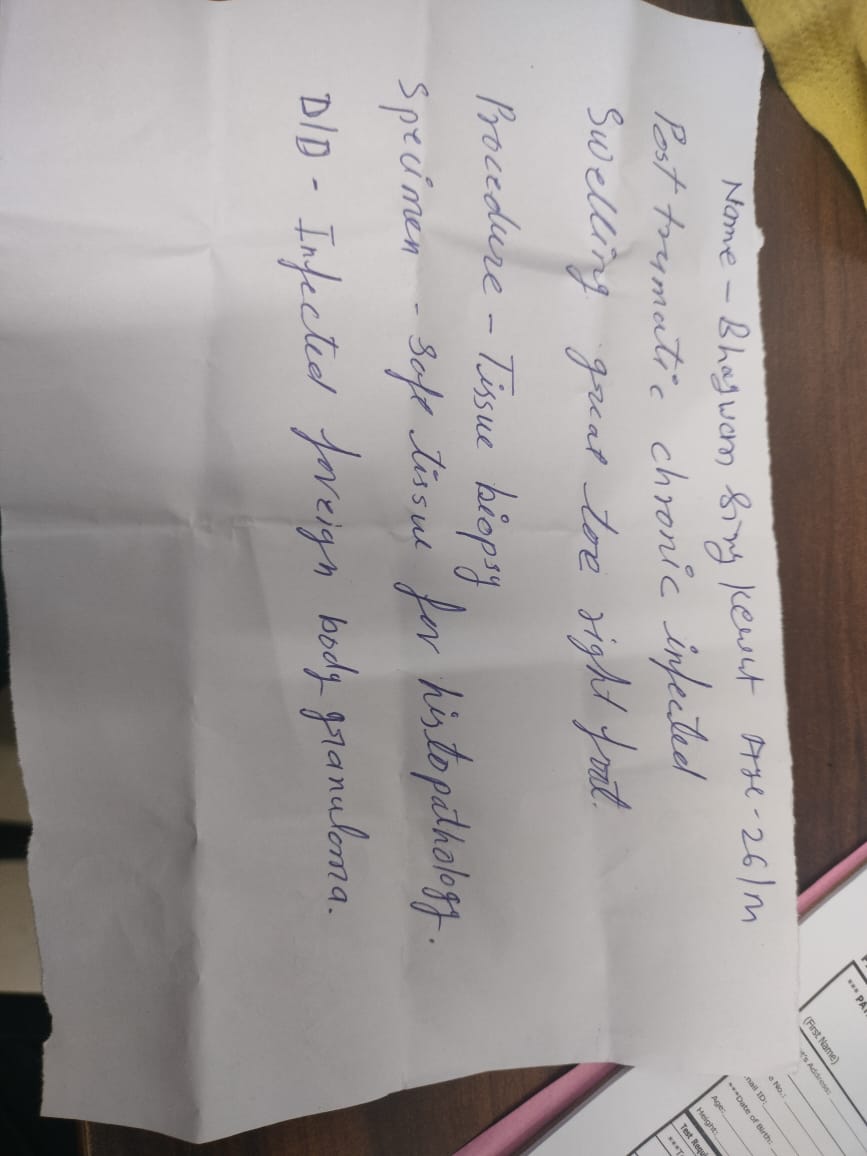 Name - Bhagwan Sing Kewat Age - 26/m
Post trumatic chronic infected
Swelling great toe right foot.
Procedure - Tissue biopsy
Specimen - Soft tissue for histopathology.
D/D - Infected foreign body granuloma.
*** PAT
(First Name)
's Address:
e No.:
nail ID:
***Date of Birth:
Age:
Height:
Test Requ